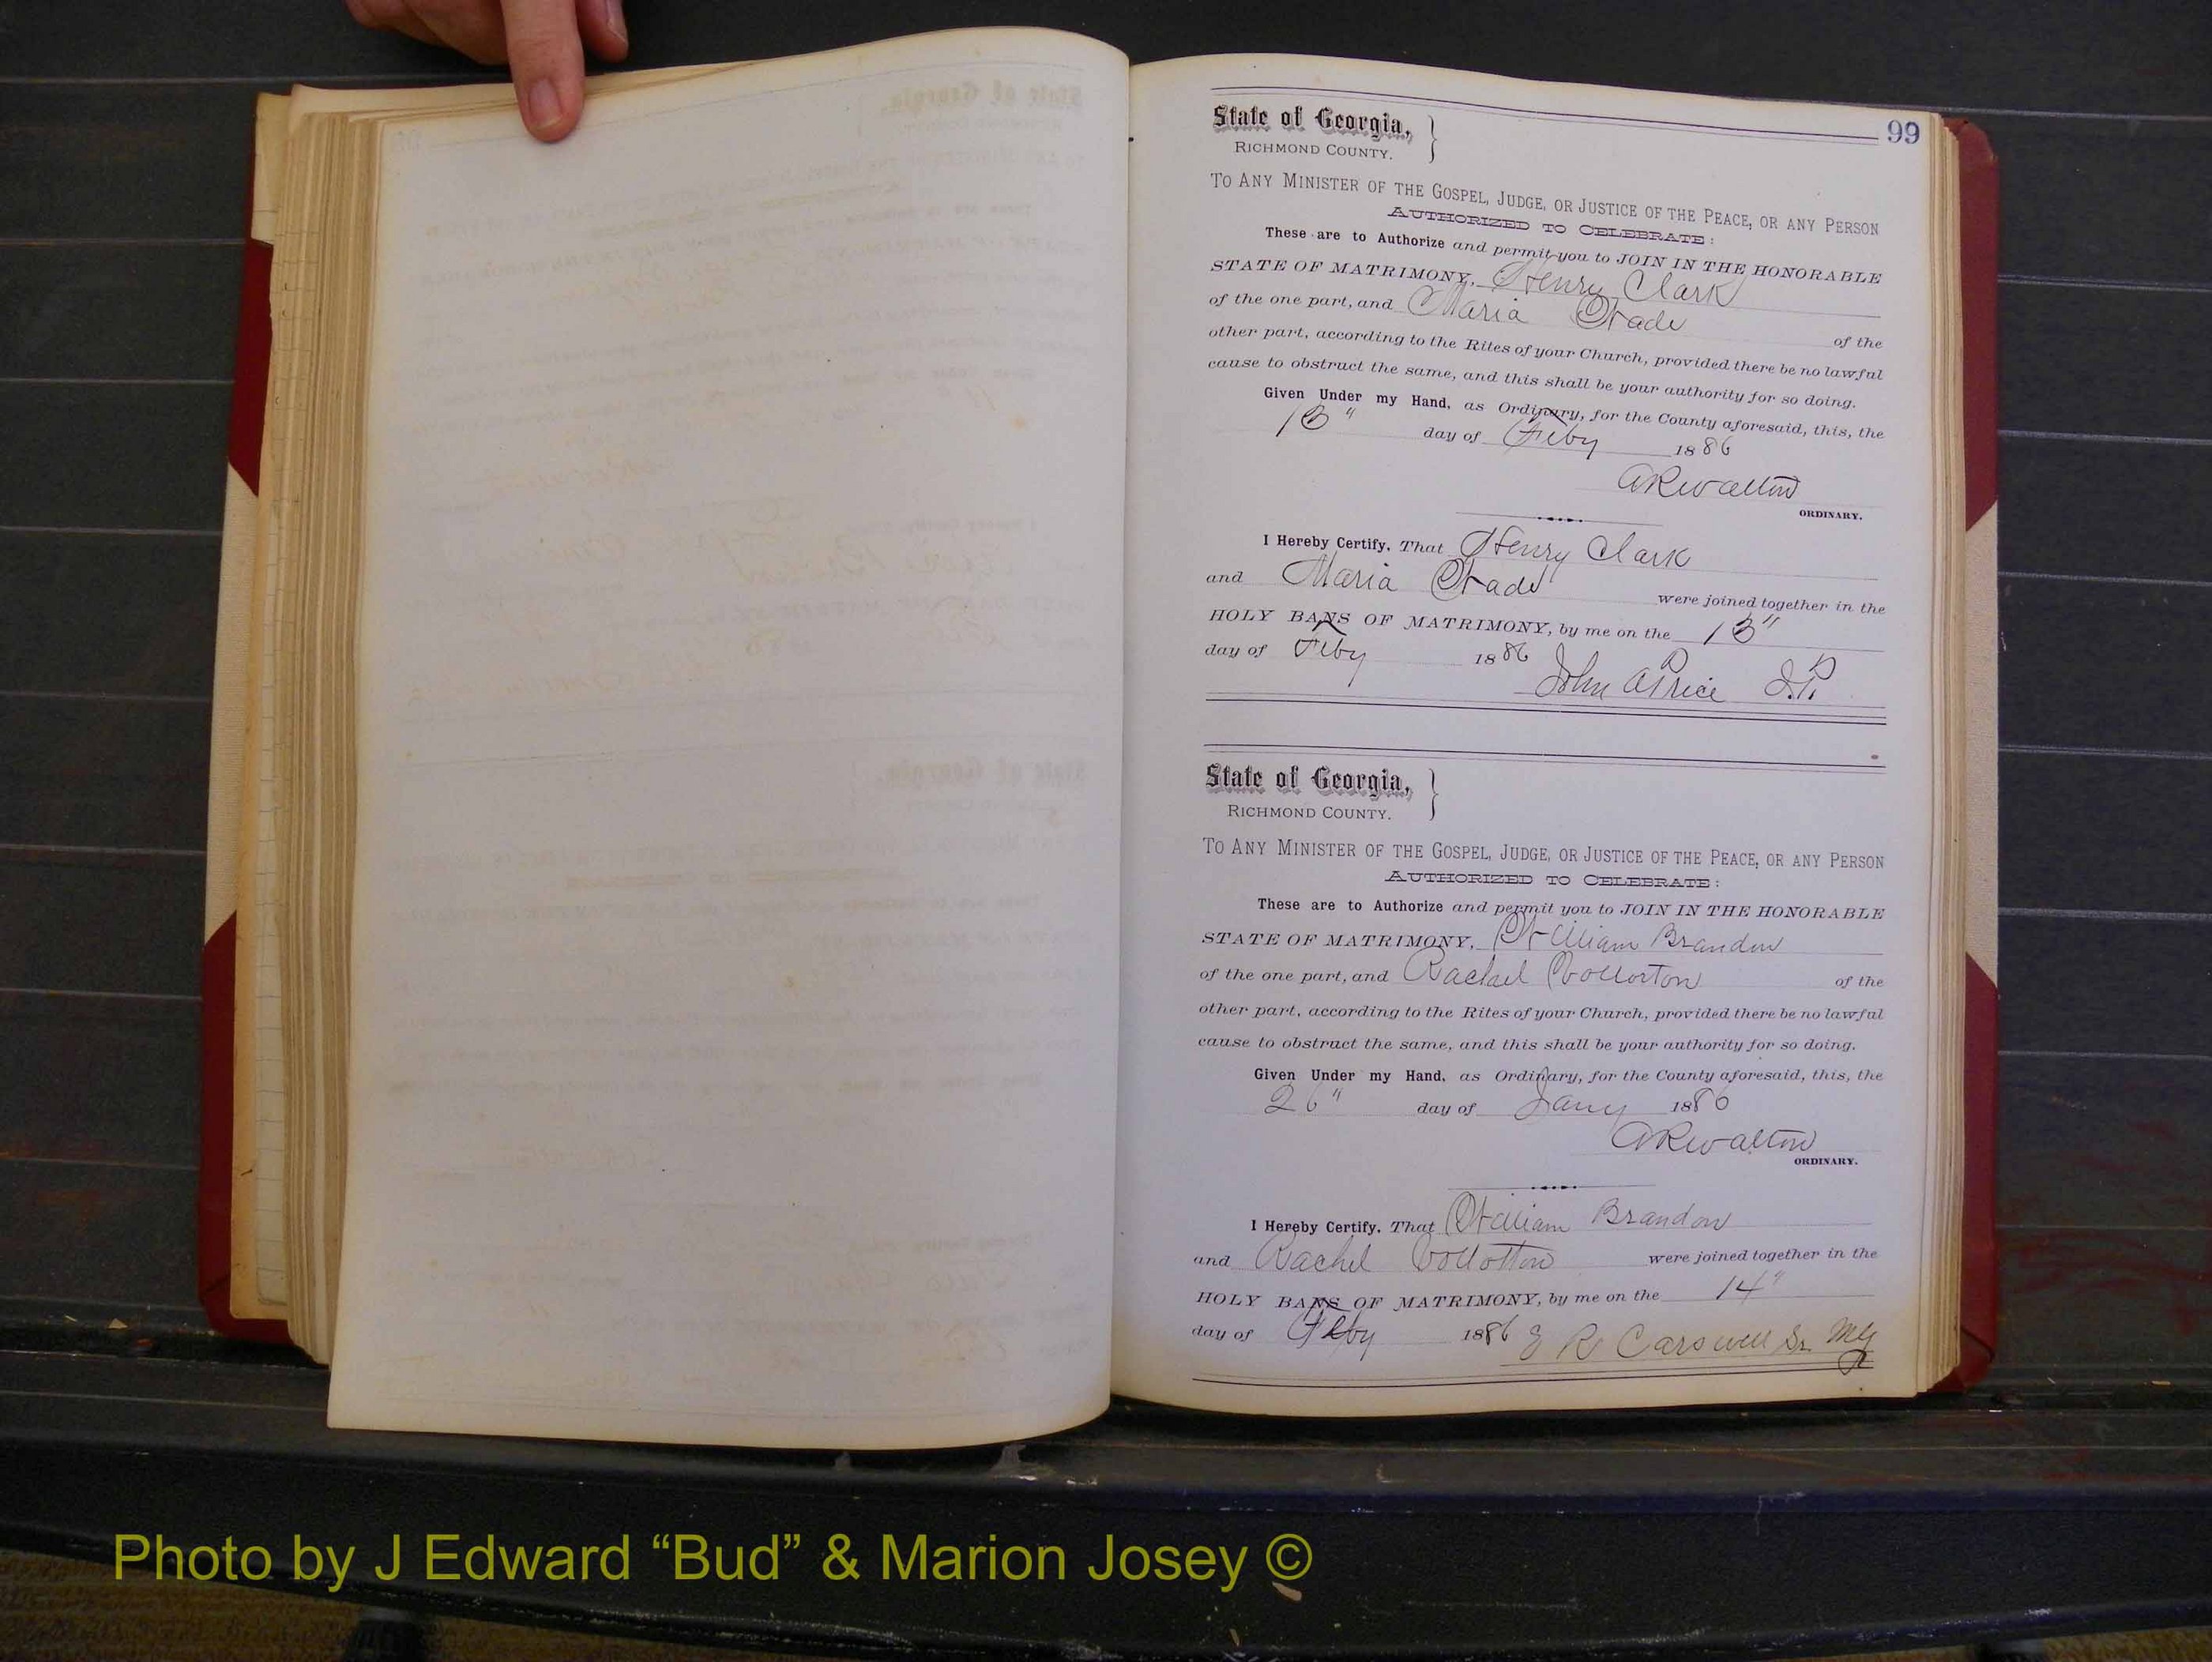 99
State of Georgia,
RICHMOND COUNTY.
TO ANY MINISTER OF THE GOSPEL, JUDGE, OR JUSTICE OF THE PEACE, OR ANY PERSON
AUTHORIZED TO CELEBRATE:
These are to Authorize and permit you to JOIN IN THE HONORABLE
STATE OF MATRIMONY, Henry Clark
of the one part, and Maria Wade
of the
other part, according to the Rites of your Church, provided there be no lawful
cause to obstruct the same, and this shall be your authority for so doing.
Given Under my Hand, as Ordinary, for the County aforesaid, this, the
13" day of Feby 1886
A R Walton
ORDINARY.
I Hereby Certify, That Henry Clark
and Maria Wade were joined together in the
HOLY BANS OF MATRIMONY, by me on the 13"
day of Feby 1886 John A Price J.P.
State of Georgia,
RICHMOND COUNTY.
TO ANY MINISTER OF THE GOSPEL, JUDGE, OR JUSTICE OF THE PEACE, OR ANY PERSON
AUTHORIZED TO CELEBRATE:
These are to Authorize and permit you to JOIN IN THE HONORABLE
STATE OF MATRIMONY, William Brandon
of the one part, and Rachael of the
other part, according to the Rites of your Church, provided there be no lawful
cause to obstruct the same, and this shall be your authority for so doing.
Given Under my Hand, as Ordinary, for the County aforesaid, this, the
26" day of Jany 1886
A R Walton
ORDINARY.
I Hereby Certify, That William Brandon
and Rachel were joined together in the
HOLY BANS OF MATRIMONY, by me on the 14"
day of Feby 1886 E R Carswell Sr MG
Photo by J Edward “Bud” & Marion Josey ©